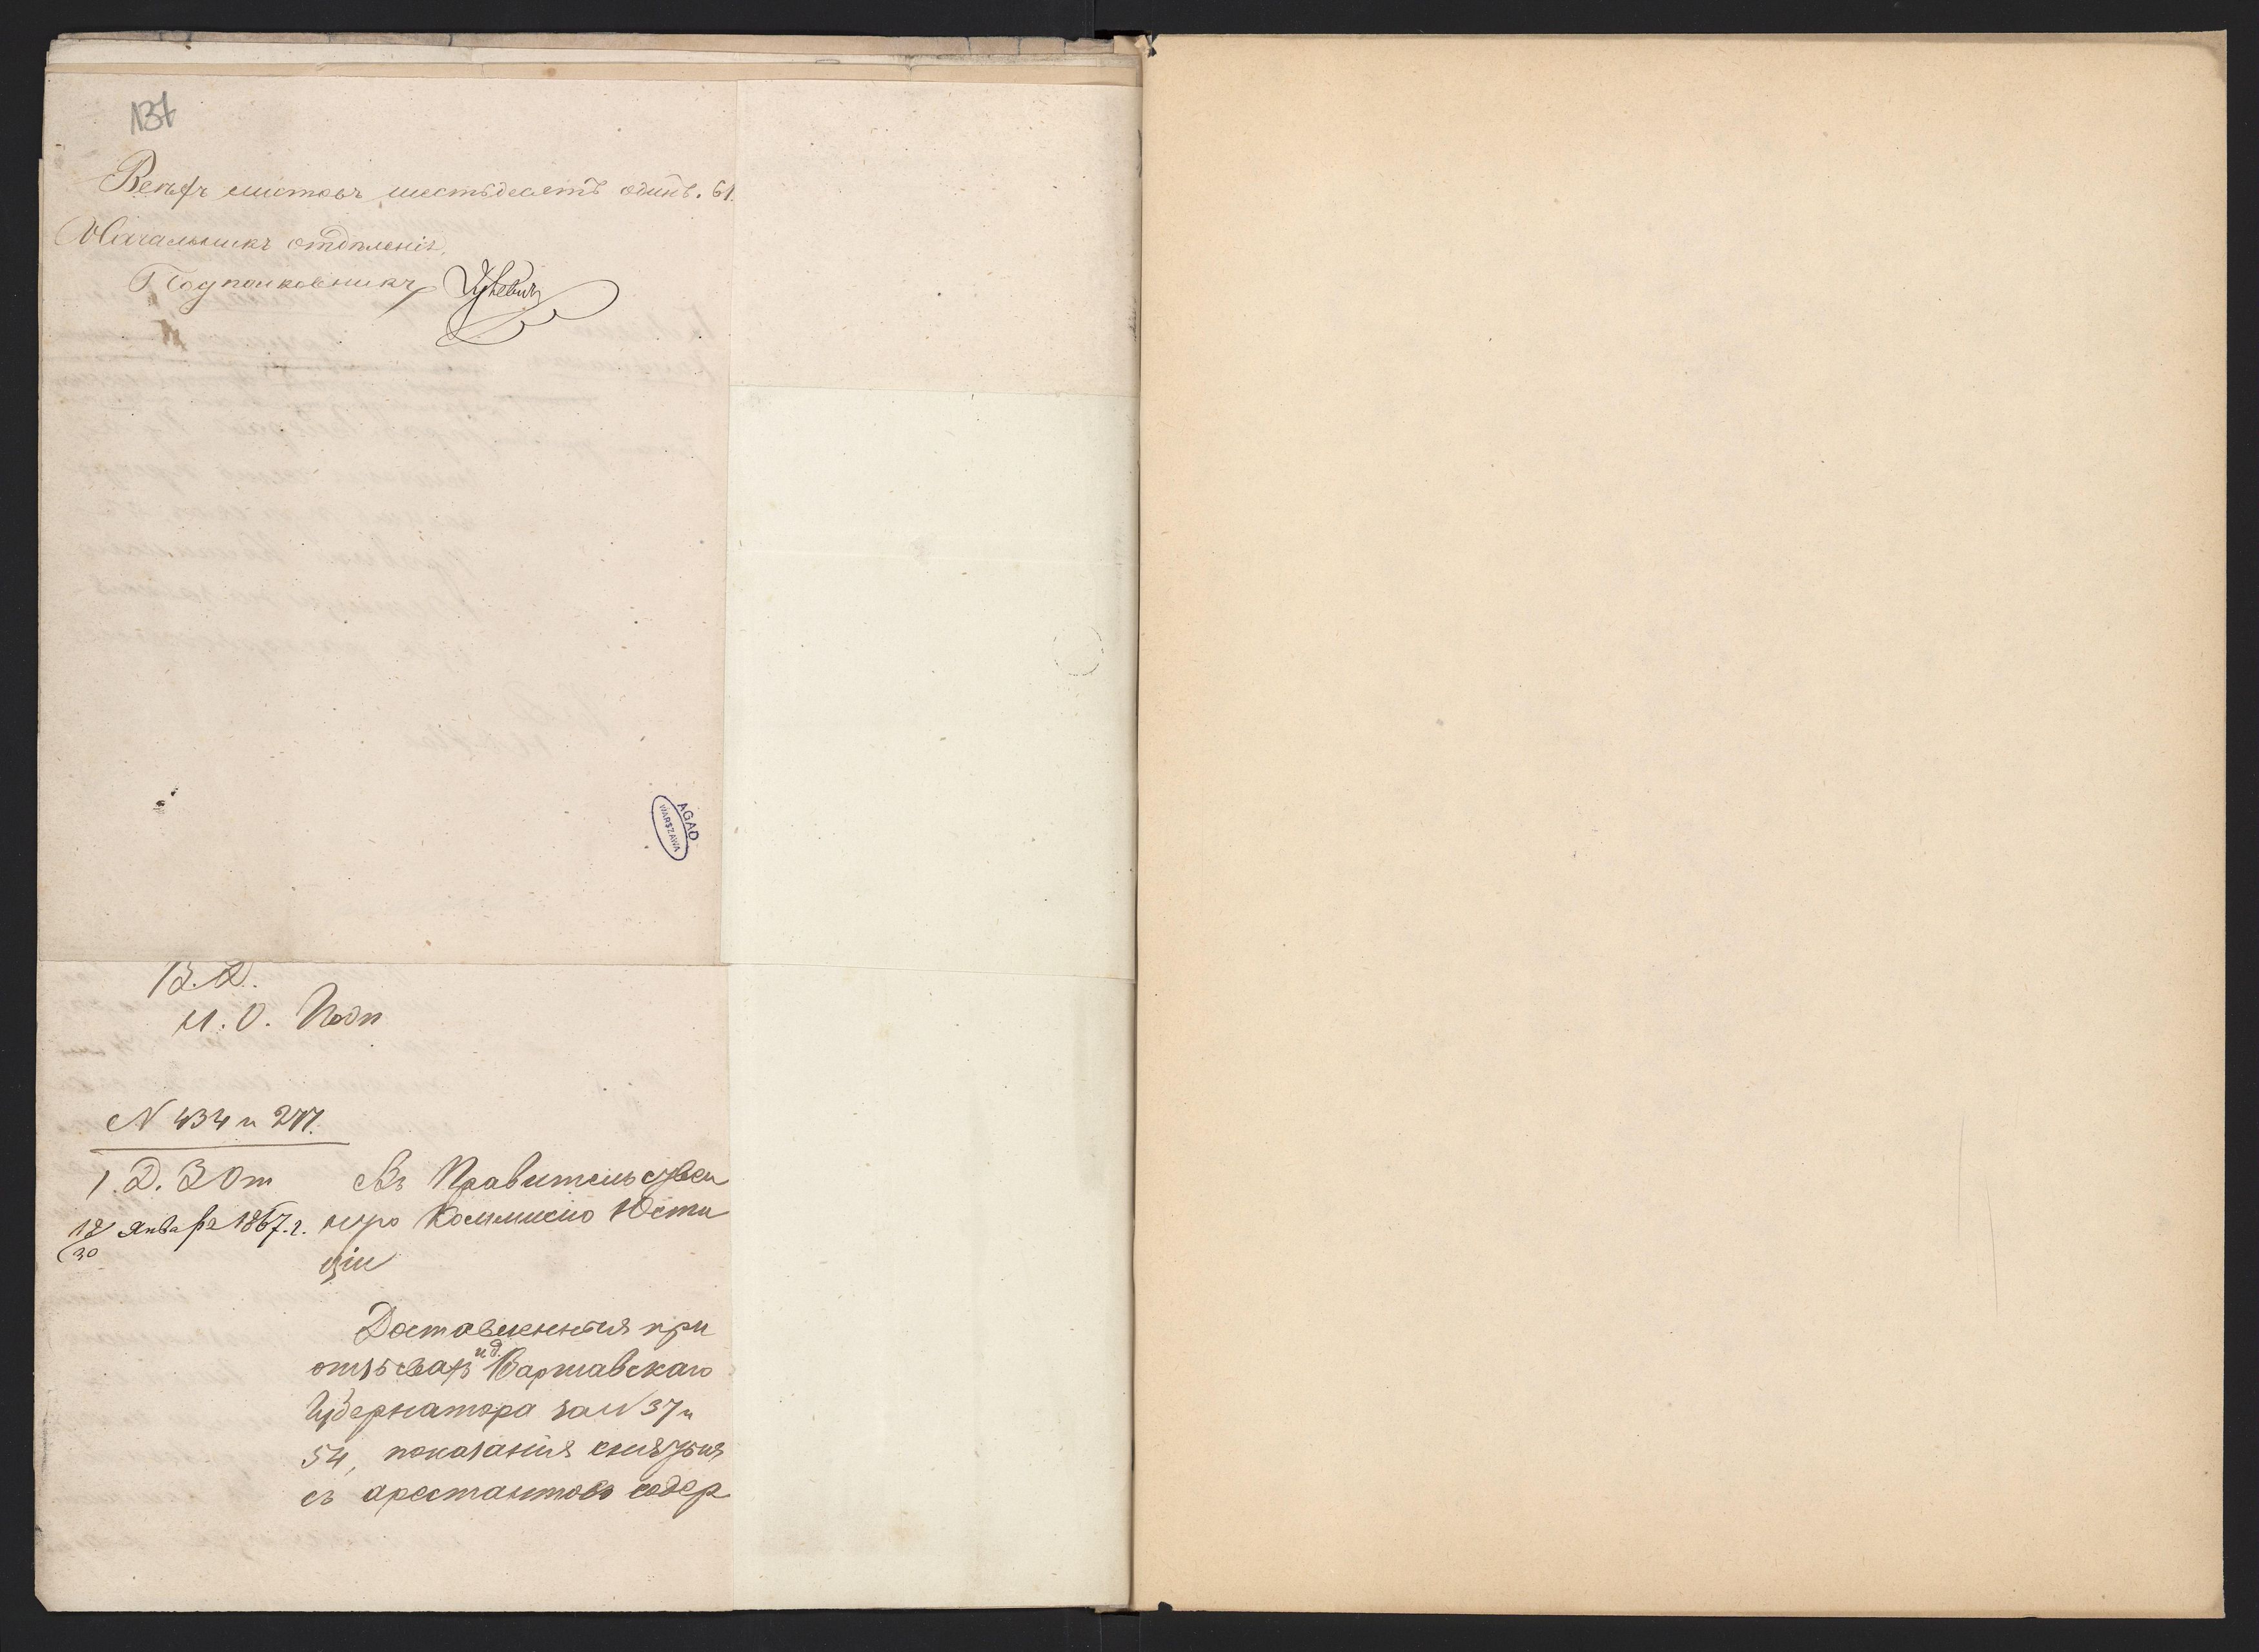 137
Всѣхъ листовъ шестьдесятъ одинъ. 61.
Начальникъ отдѣленія,
Подполковникъ
AGAD
WARSZAWA
В. Д.
Н. О. Подп
N 434 и 277.
1. Д. 3 От
18/30 Января 1867. г.
Въ Правительствен
ную Коммисію Юсти
ціи
Доставленныя при
отзывахъ и д. Варшавскаго
Губернатора за N 37 и
54, показанія снятыя
съ арестантовъ содер